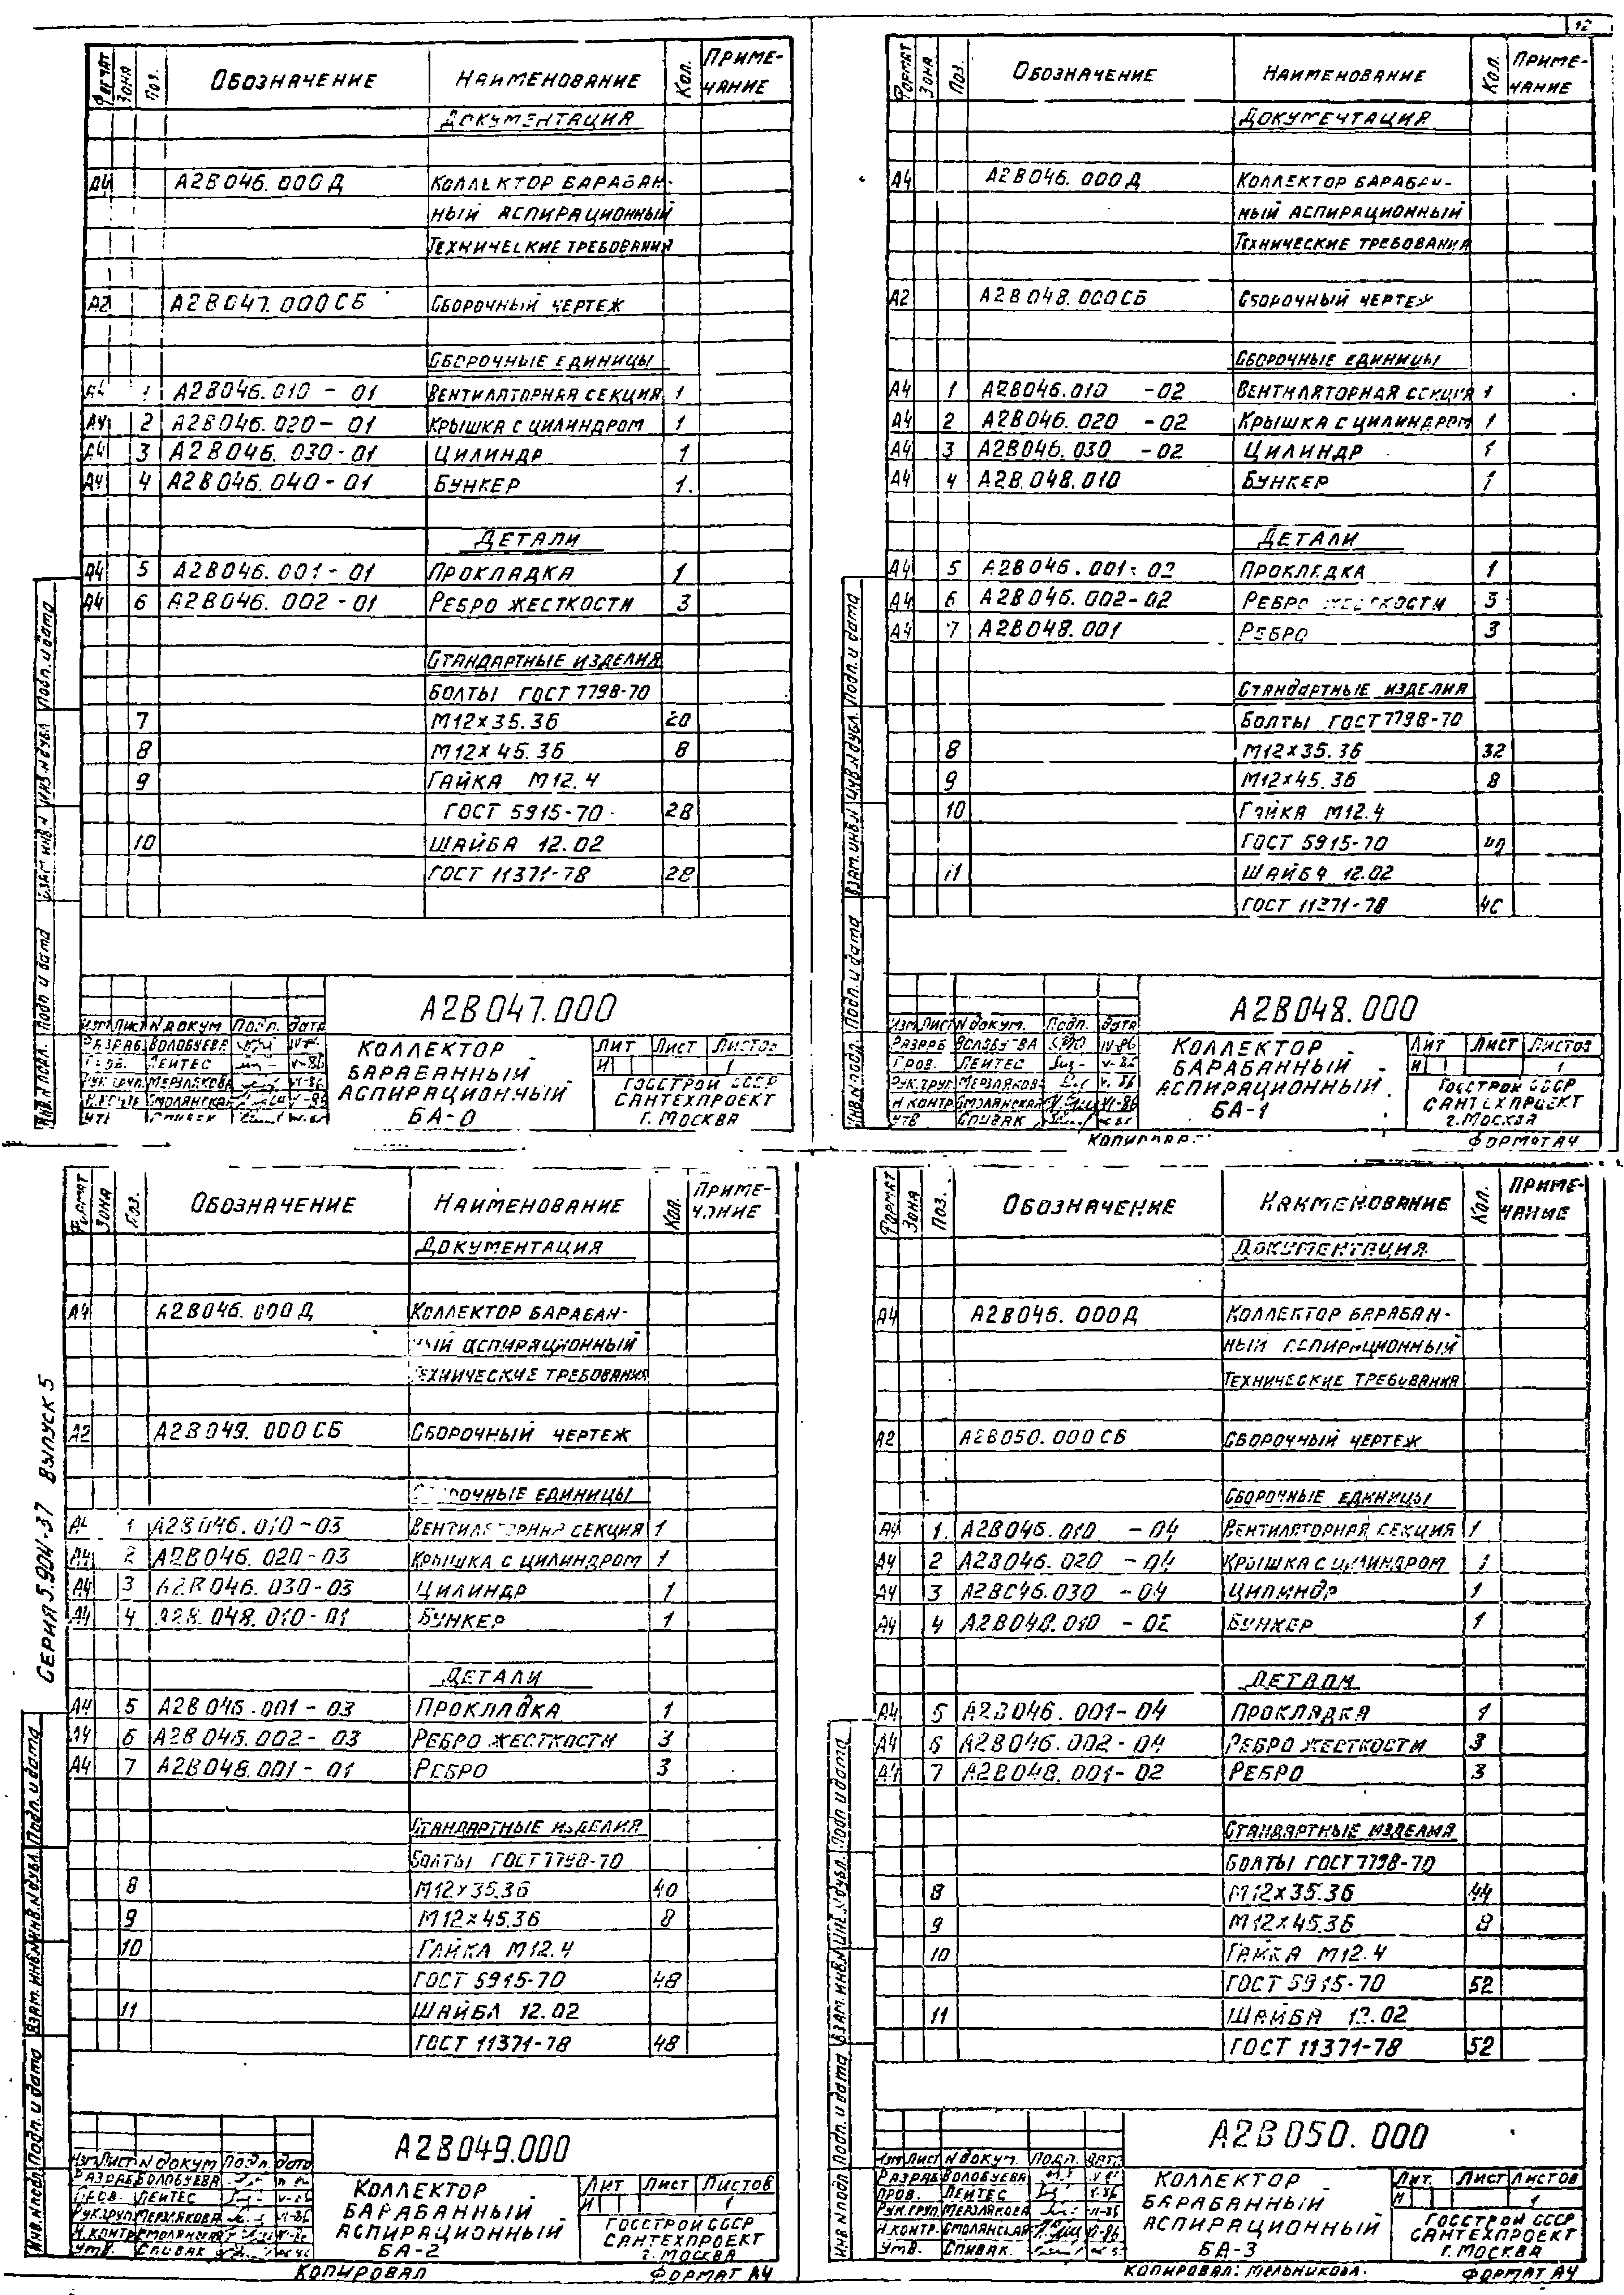 12
Формат Зона Поз. Обозначение Наименование Кол. Примечание
Документация
А4 А2В046.000Д Коллектор барабан-
ный аспирационный
Технические требования
А2 А2В047.000СБ Сборочный чертеж
Сборочные единицы
А4 1 А2В046.010-01 Вентиляторная секция 1
А4 2 А2В046.020-01 Крышка с цилиндром 1
А4 3 А2В046.030-01 Цилиндр 1
А4 4 А2В046.040-01 Бункер 1
Детали
А4 5 А2В046.001-01 Прокладка 1
А4 6 А2В046.002-01 Ребро жесткости 3
Стандартные изделия
Болты ГОСТ 7798-70
7 М12×35.36 20
8 М12×45.36 8
9 Гайка М12.4
ГОСТ 5915-70 28
10 Шайба 12.02
ГОСТ 11371-78 28
Инв.N подл. Подп. и дата Взам. инв.N Инв.N дубл. Подп. и дата
А2В047.000
Изм Лист N докум Подп. Дата
Разраб Волобуева
Пров. Лейтес
Рук.груп Мерзлякова
Н.контр Смолянская
Утв Спивак
Коллектор
барабанный
аспирационный
БА-0
Лит Лист Листов
И 1
Госстрой СССР
Сантехпроект
г. Москва
Формат Зона Поз. Обозначение Наименование Кол. Примечание
Документация
А4 А2В046.000Д Коллектор барабан-
ный аспирационный
Технические требования
А2 А2В048.000СБ Сборочный чертеж
Сборочные единицы
А4 1 А2В046.010 -02 Вентиляторная секция 1
А4 2 А2В046.020 -02 Крышка с цилиндром 1
А4 3 А2В046.030 -02 Цилиндр 1
А4 4 А2В.048.010 Бункер 1
Детали
А4 5 А2В046.001-02 Прокладка 1
А4 6 А2В046.002-02 Ребро жесткости 3
А4 7 А2В048.001 Ребро 3
Стандартные изделия
Болты ГОСТ 7798-70
8 М12×35.36 32
9 М12×45.36 8
10 Гайка М12.4
ГОСТ 5915-70 40
11 Шайба 12.02
ГОСТ 11371-78 40
Инв.N подл. Подп. и дата Взам. инв.N Инв.N дубл. Подп. и дата
А2В048.000
Изм Лист N докум. Подп. Дата
Разраб Волобуева
Пров. Лейтес
Рук.груп Мерзлякова
Н.контр Смолянская
Утв Спивак
Коллектор
барабанный
аспирационный
БА-1
Лит Лист Листов
И 1
Госстрой СССР
Сантехпроект
г. Москва
Формат А4
Серия 5.904-37 Выпуск 5
Формат Зона Поз. Обозначение Наименование Кол. Примечание
Документация
А4 А2В046.000Д Коллектор барабан-
ный аспирационный
Технические требования
А2 А2В049.000СБ Сборочный чертеж
Сборочные единицы
А4 1 А2В046.010-03 Вентиляторная секция 1
А4 2 А2В046.020-03 Крышка с цилиндром 1
А4 3 А2В046.030-03 Цилиндр 1
А4 4 А2В.048.010-01 Бункер 1
Детали
А4 5 А2В046.001-03 Прокладка 1
А4 6 А2В046.002-03 Ребро жесткости 3
А4 7 А2В048.001-01 Ребро 3
Стандартные изделия
Болты ГОСТ 7798-70
8 М12×35.36 40
9 М12×45.36 8
10 Гайка М12.4
ГОСТ 5915-70 48
11 Шайба 12.02
ГОСТ 11371-78 48
Инв.N подл. Подп. и дата Взам. инв.N Инв.N дубл. Подп. и дата
А2В049.000
Изм Лист N докум Подп. Дата
Разраб Волобуева
Пров. Лейтес
Рук.груп Мерзлякова
Н.контр Смолянская
Утв. Спивак
Коллектор
барабанный
аспирационный
БА-2
Лит Лист Листов
И 1
Госстрой СССР
Сантехпроект
г. Москва
Копировал Формат А4
Формат Зона Поз. Обозначение Наименование Кол. Примечание
Документация
А4 А2В046.000Д Коллектор барабан-
ный аспирационный
Технические требования
А2 А2В050.000СБ Сборочный чертеж
Сборочные единицы
А4 1. А2В046.010 -04 Вентиляторная секция 1
А4 2 А2В046.020 -04 Крышка с цилиндром 1
А4 3 А2В046.030 -04 Цилиндр 1
А4 4 А2В048.010 -02 Бункер 1
Детали
А4 5 А2В046.001-04 Прокладка 1
А4 6 А2В046.002-04 Ребро жесткости 3
А4 7 А2В048.001-02 Ребро 3
Стандартные изделия
Болты ГОСТ 7798-70
8 М12×35.36 44
9 М12×45.36 8
10 Гайка М12.4
ГОСТ 5915-70 52
11 Шайба 12.02
ГОСТ 11371-78 52
Инв.N подл Подп. и дата Взам. инв.N Инв.N дубл. Подп. и дата
А2В050.000
Изм Лист N докум. Подп. Дата
Разраб Волобуева
Пров. Лейтес
Рук.груп Мерзлякова
Н.контр. Смолянская
Утв. Спивак.
Коллектор
барабанный
аспирационный
БА-3
Лит. Лист Листов
И 1
Госстрой СССР
Сантехпроект
г. Москва
Копировал: Мельникова. Формат А4